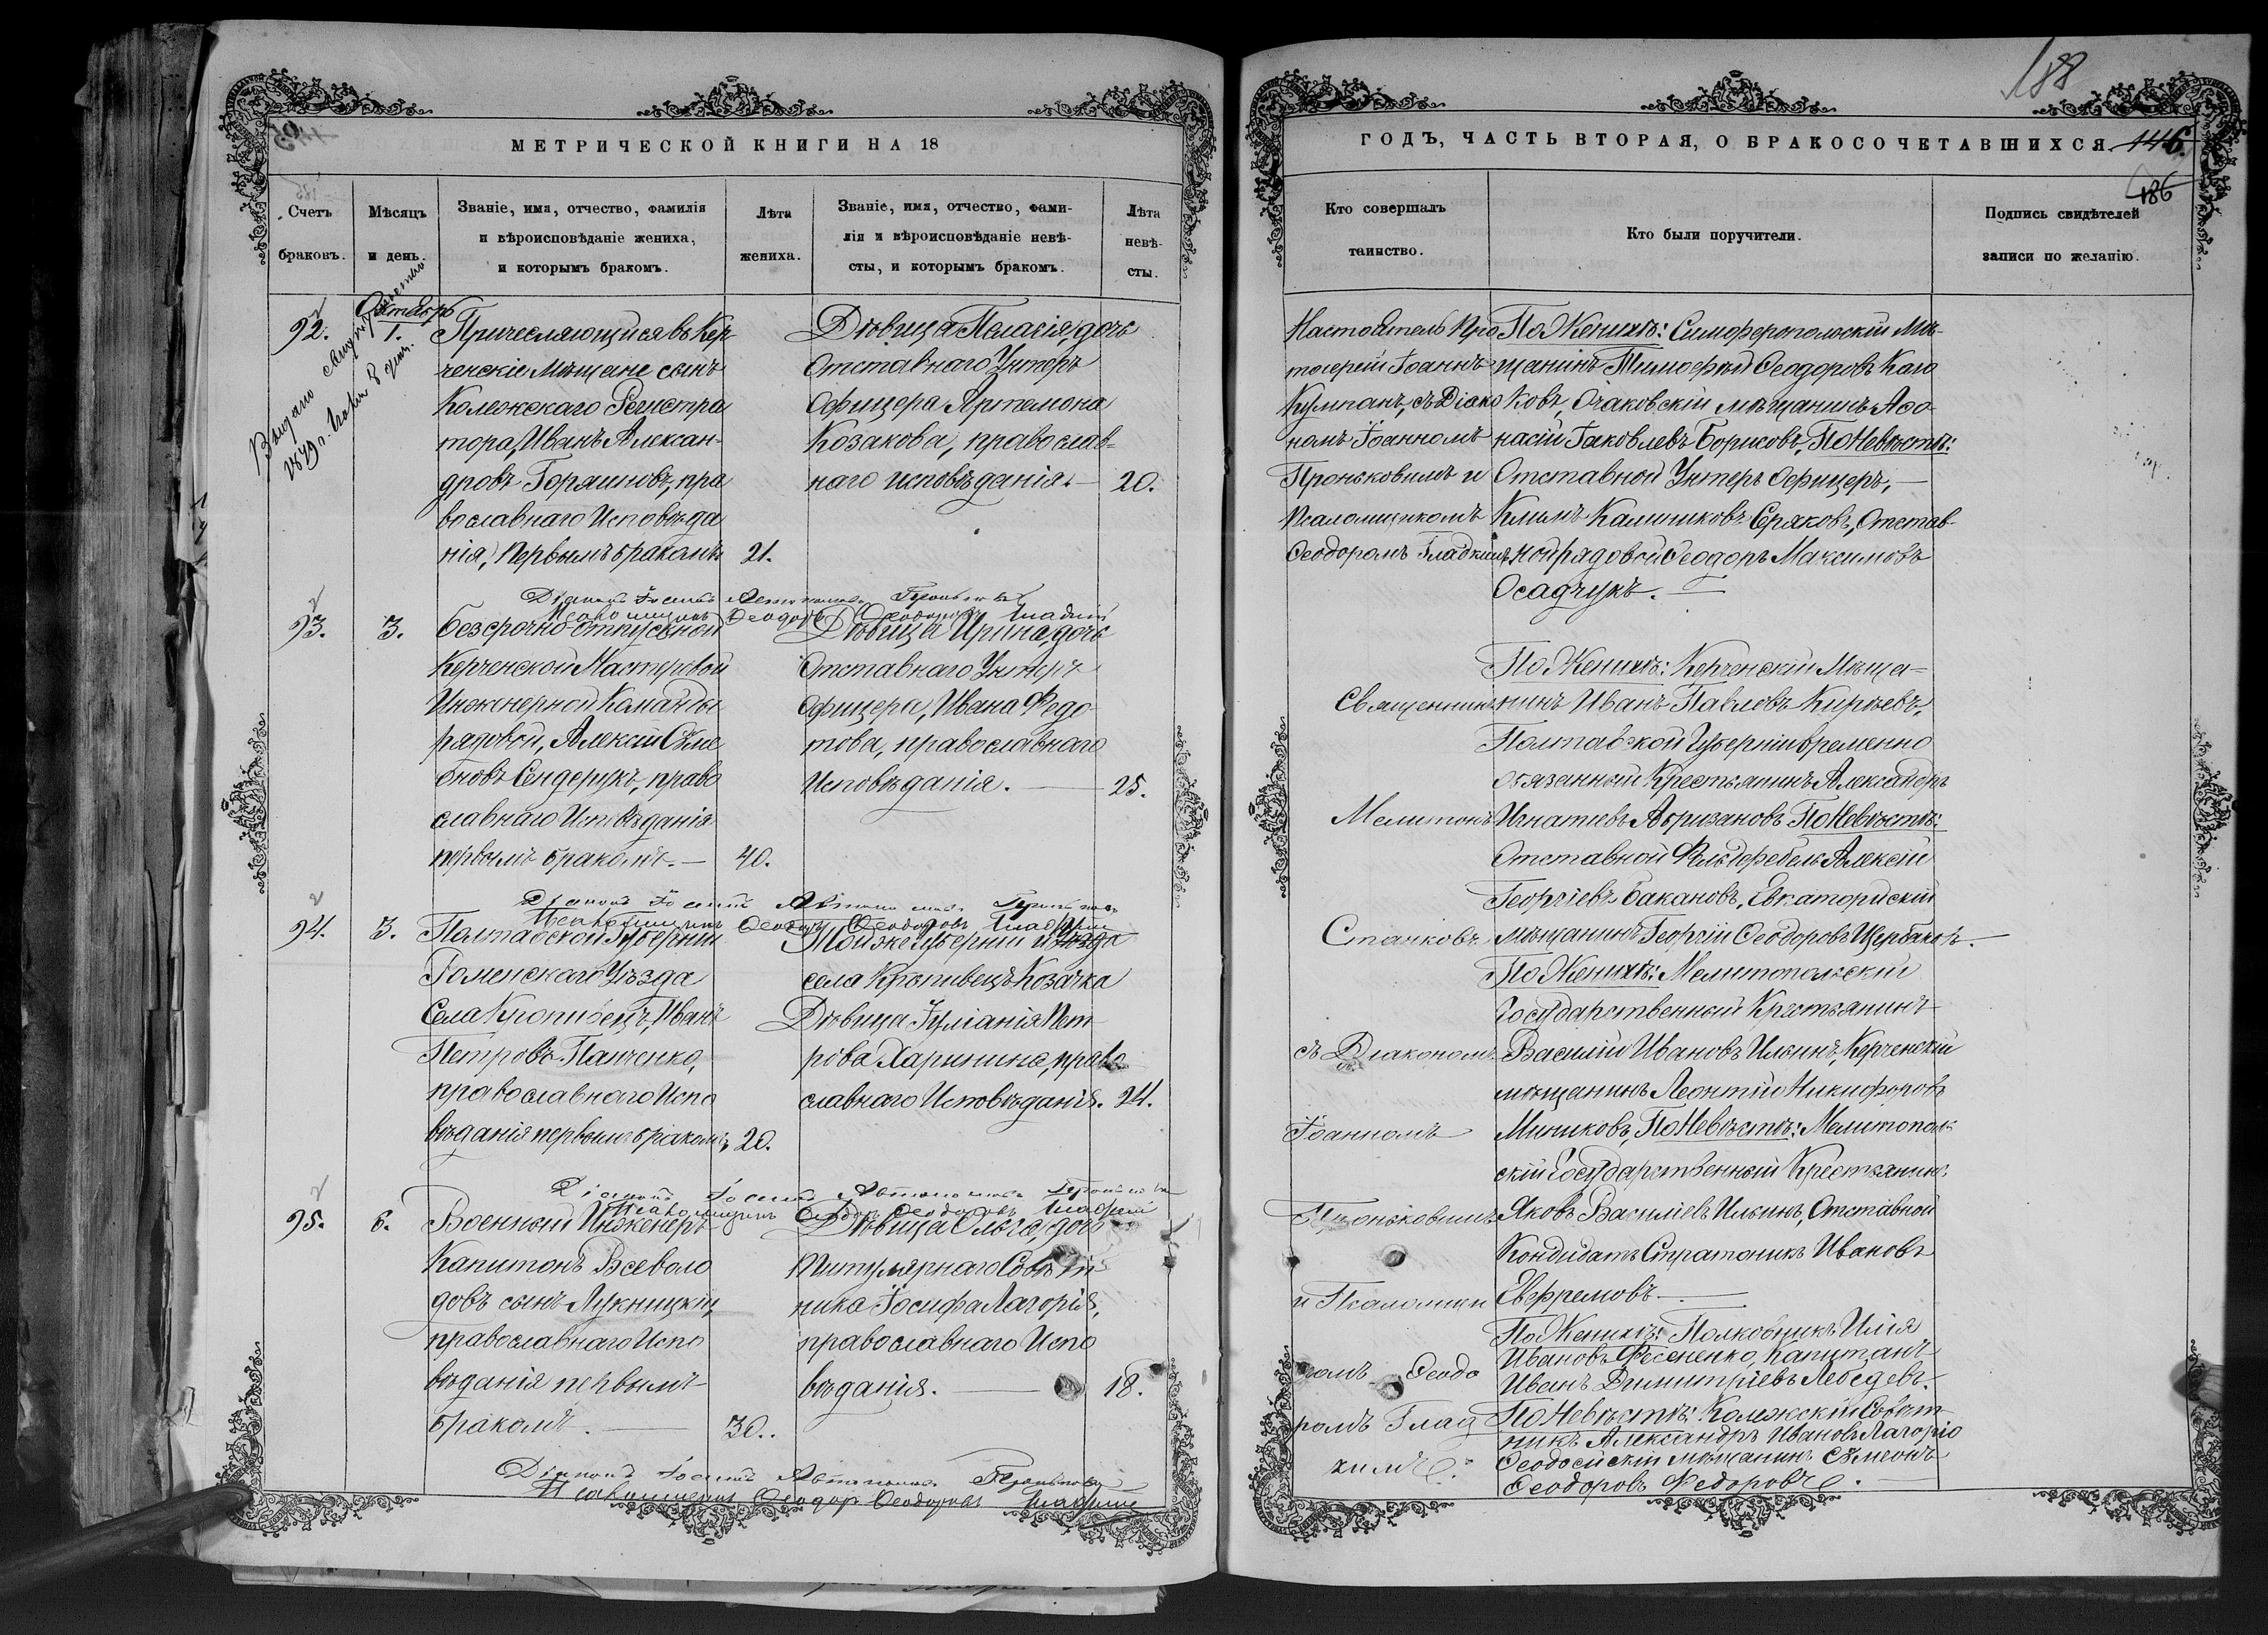 188
МЕТРИЧЕСКОЙ КНИГИ НА 18
Счетъ браковъ.
Мѣсяцъ и день.
Званіе, имя, отчество, фамилія
и вѣроисповѣданіе жениха,
и которымъ бракомъ.
Лѣта жениха.
Званіе, имя, отчество, фами-
лія и вѣроисповѣданіе невѣ-
сты, и которымъ бракомъ.
Лѣта невѣ-
сты.
Октябрь
92.
1.
Причесляющійся въ Кер
ченскіе Мѣщане сынъ
Колежскаго Регистра
тора, Иванъ Алексан-
дровъ Горяиновъ, пра
вославнаго Исповѣда
нія, первымъ бракомъ
21.
Дѣвица Пелагія, дочь
Отставнаго Унтеръ
Офицера Артемона
Козакова, православ-
наго исповѣданія.
20.
93.
3.
безсрочно отпускной
Керченской Мастеровой
Инженерной Команды
рядовой, Алексій Симе
оновъ Сендерукъ, право
славнаго Исповѣданія
первымъ бракомъ.
40.
Дѣвица Ирина, дочь
Отставнаго Унтеръ
Офицера, Ивана Федо
това, православнаго
Исповѣданія.
25.
94.
3.
Полтавской Губерніи
Роменскаго Уѣзда
Села Кропивецъ, Иванъ
Петровъ Панченко,
православнаго Испо
вѣданія первымъ бракомъ
20.
Той же губерніи и уѣзда
села Кропивецъ Козачка
Дѣвица Іуліанія Пет
рова Харинина, право
славнаго Исповѣданія.
24.
95.
6.
Военный Инженеръ
Капитонъ Всеволо
довъ сынъ Лукницкій,
православнаго Испо
вѣданія первымъ
бракомъ.
30.
Дѣвица Ольга, дочь
Титулярнаго Совѣт
ника Іосифа Лагорія,
православнаго Испо
вѣданія.
18.
Псаломщикъ Ѳеодоръ Ѳеодоровъ Гладкій
ГОДЪ, ЧАСТЬ ВТОРАЯ, О БРАКОСОЧЕТАВШИХСЯ.
146.
186
Кто совершалъ
таинство.
Кто были поручители.
Подпись свидѣтелей
записи по желанію.
Настоятель Про
тоіерей Іоаннъ
Кумпанъ, съ Діако
номъ Іоанномъ
Проньковимъ и
Псаломщикомъ
Ѳеодоромъ Гладкимъ
По Женихѣ: Симферопольскій Мѣ-
щанинъ Тимофей Ѳеодоровъ Каго
ковъ, Очаковскій мѣщанинъ Аѳо-
насій Іаковлевъ Борисовъ, По Невѣстѣ:
Отставной Унтеръ Офицеръ,
Климъ Калишковъ Еряковъ, Отстав-
ной рядовой Ѳеодоръ Максимовъ
Осадчукъ.
По Женихѣ: Керченскій Мѣща-
нинъ Иванъ Павловъ Кирѣевъ,
Полтавской Губерніи временно
обязанный Крестьянинъ Александръ
Игнатіевъ Абризановъ По Невѣстѣ:
Отставной Фельдфебель Алексій
Георгіевъ Бакановъ, Евпаторійскій
мѣщанинъ Георгій Ѳеодоровъ Щербаковъ.
Священникъ
Мелитонъ
Станковъ
съ Діакономъ
Іоанномъ
Проньковимъ
и Псаломщи
комъ Ѳеодо
ромъ Глад
кимъ.
По Женихѣ: Мелитопольскій
Государственный Крестьянинъ
Василій Ивановъ Ильинъ, Керченскій
мѣщанинъ Леонтій Никифоровъ
Миниковъ, По Невѣстѣ: Мелитополь
скій Государственный Крестьянинъ
Яковъ Василіевъ Ильинъ, Отставной
Кондидатъ Стратоникъ Ивановъ
Евфремовъ
По Женихѣ: Полковникъ Илія
Ивановъ Фесененко, Капитанъ
Иванъ Димитріевъ Лебедевъ.
По Невѣстѣ: Колежскій Совѣт
никъ Александръ Ивановъ Лагоріо
Ѳеодосійскій мѣщанинъ Сѵмеонъ
Ѳеодоровъ Федоровъ.